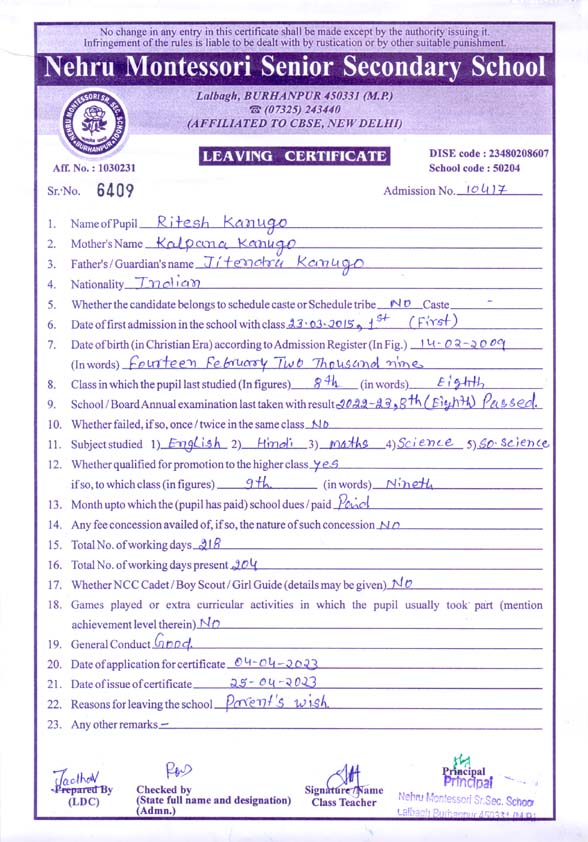 No change in any entry in this certificate shall be made except by the authority issuing it.
Infringement of the rules is liable to be dealt with by rustication or by other suitable punishment.
Nehru Montessori Senior Secondary School
Lalbagh, BURHANPUR 450331 (M.P.)
☎ (07325) 243440
(AFFILIATED TO CBSE, NEW DELHI)
NEHRU MONTESSORI SR. SEC. SCHOOL
BURHANPUR
LEAVING CERTIFICATE
DISE code : 23480208607
Aff. No. : 1030231
School code : 50204
Sr. No. 6409
Admission No. 10417
1. Name of Pupil Ritesh Kanugo
2. Mother's Name Kalpana Kanugo
3. Father's / Guardian's name Jitendra Kanugo
4. Nationality Indian
5. Whether the candidate belongs to schedule caste or Schedule tribe NO Caste -
6. Date of first admission in the school with class 23-03-2015, 1st (First)
7. Date of birth (in Christian Era) according to Admission Register (In Fig.) 14-02-2009
(In words) Fourteen February Two Thousand nine
8. Class in which the pupil last studied (In figures) 8th (in words) Eighth
9. School / Board Annual examination last taken with result 2022-23, 8th (Eighth) Passed.
10. Whether failed, if so, once / twice in the same class NO
11. Subject studied 1) English 2) Hindi 3) maths 4) Science 5) SO. science
12. Whether qualified for promotion to the higher class yes
if so, to which class (in figures) 9th (in words) Nineth
13. Month upto which the (pupil has paid) school dues / paid Paid
14. Any fee concession availed of, if so, the nature of such concession NO
15. Total No. of working days 218
16. Total No. of working days present 204
17. Whether NCC Cadet / Boy Scout / Girl Guide (details may be given) NO
18. Games played or extra curricular activities in which the pupil usually took part (mention
achievement level therein) NO
19. General Conduct Good.
20. Date of application for certificate 04-04-2023
21. Date of issue of certificate 25-04-2023
22. Reasons for leaving the school Parent's wish
23. Any other remarks –
Prepared By
(LDC)
Checked by
(State full name and designation)
(Admn.)
Signature / Name
Class Teacher
Principal
Principal
Nehru Montessori Sr.Sec. School
Lalbagh Burhanpur 450331 (M.P.)